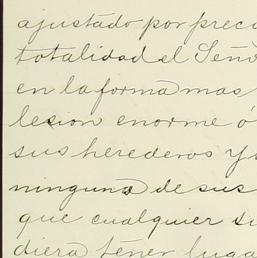 ajustado por preci
totalidad el Seño
en la forma mas
lesion enorme ó
sus herederos y s
ninguna de sus
que cualquier su
diera tener luga